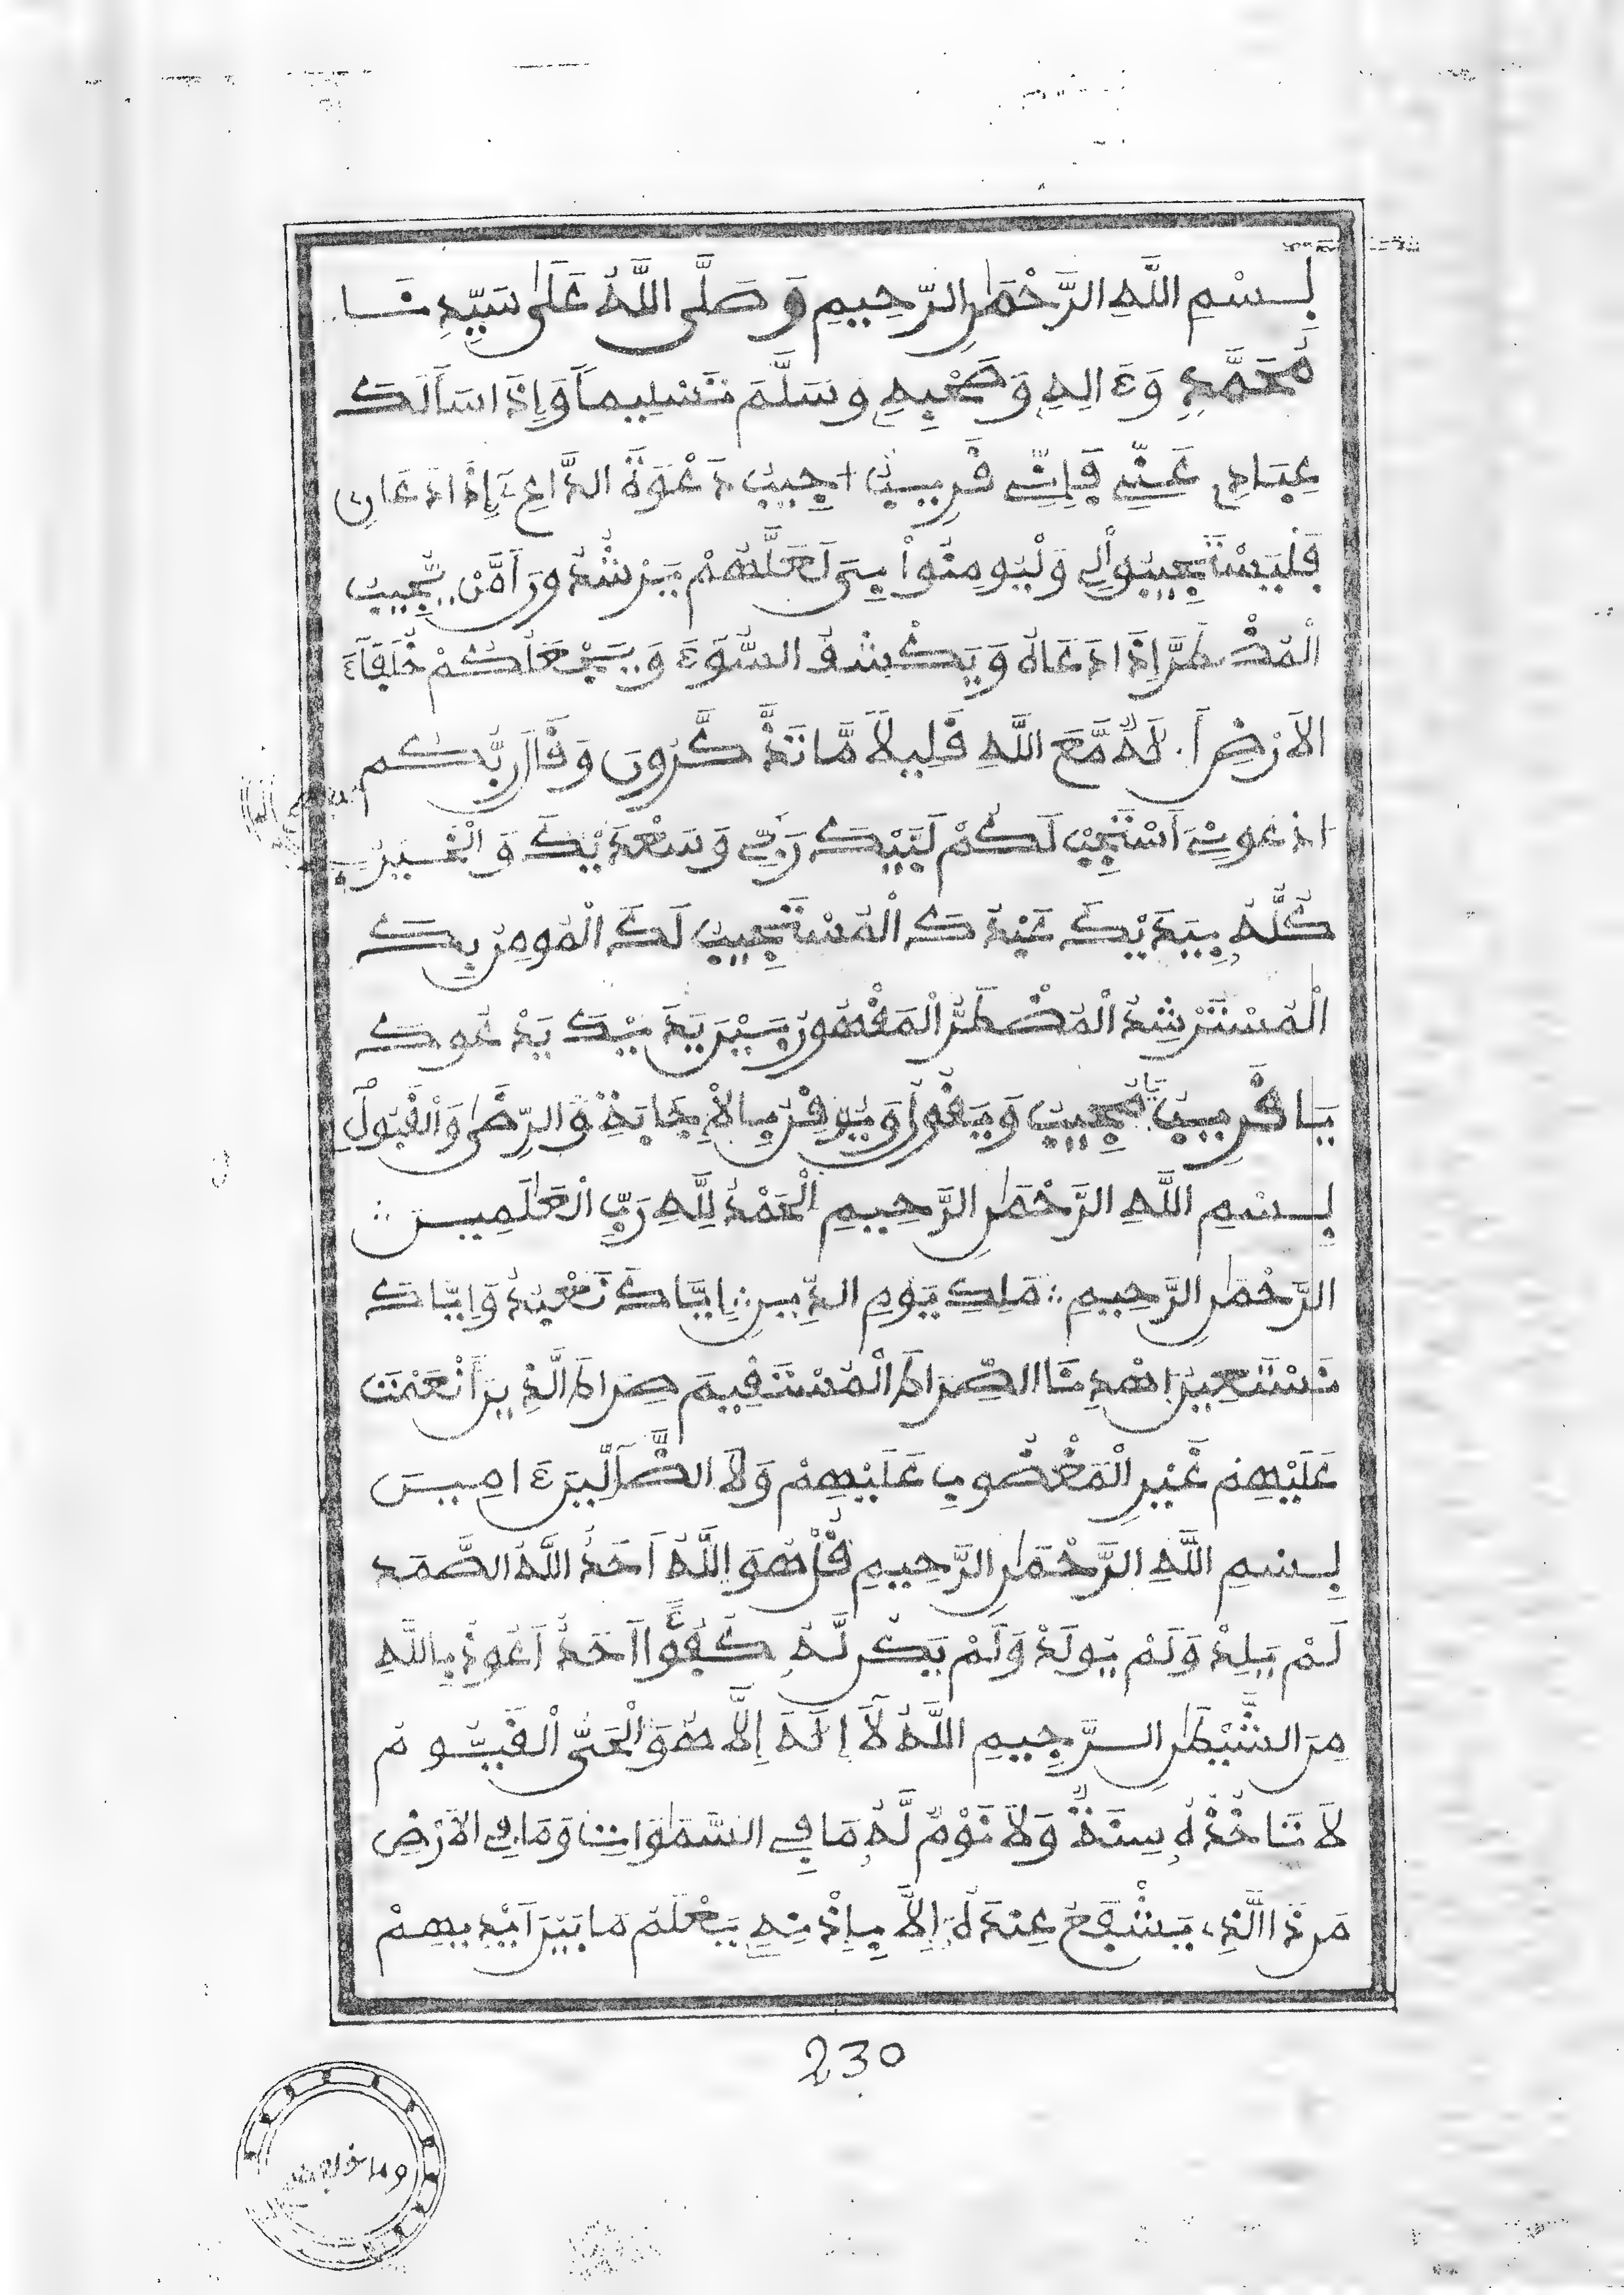 بِسْمِ اللَّهِ الرَّحْمَٰنِ الرَّحِيمِ وَصَلَّى اللَّهُ عَلَىٰ سَيِّدِنَا
مُحَمَّدٍ وَءَالِهِ وَصَحْبِهِ وَسَلَّمَ تَسْلِيماً وَإِذَا سَأَلَكَ
عِبَادِي عَنِّي فَإِنِّي قَرِيبٌ اُجِيبُ دَعْوَةَ الدَّاعِ إِذَا دَعَانِ
فَلْيَسْتَجِيبُواْ لِي وَلْيُومِنُواْ بِي لَعَلَّهُمْ يَرْشُدُونَ أَمَّنْ يُّجِيبُ
الْمُضْطَرَّ إِذَا دَعَاهُ وَيَكْشِفُ السُّوءَ وَيَجْعَلُكُمْ خُلَفَاءَ
الاَرْضِ أَ.لَهٌ مَّعَ اللَّهِ قَلِيلاً مَّا تَذَّكَّرُونَ وَقَالَ رَبُّكُم
ادْعُونِي أَسْتَجِبْ لَكُمْ لَبَّيْكَ رَبِّي وَسَعْدَيْكَ وَالْخَيْرُ
كُلُّهُ بِيَدَيْكَ عَبْدُكَ الْمُسْتَجِيبُ لَكَ الْمُومِنُ بِكَ
الْمُسْتَرْشِدُ الْمُضْطَرُّ الْمَقْهُورُ بَيْنَ يَدَيْكَ يَدْعُوكَ
يَا قَرِيبُ يَا مُجِيبُ وَيَقُولُ وَيُوقِنُ بِالاِجَابَةِ وَالرِّضَىٰ وَالْقَبُولِ
بِسْمِ اللَّهِ الرَّحْمَٰنِ الرَّحِيمِ الْحَمْدُ لِلَّهِ رَبِّ الْعَٰلَمِينَ ∴
الرَّحْمَٰنِ الرَّحِيمِ ∴ مَلِكِ يَوْمِ الدِّينِ ∴ إِيَّاكَ نَعْبُدُ وَإِيَّاكَ
نَسْتَعِينُ اهْدِنَا الصِّرَاطَ الْمُسْتَقِيمَ صِرَاطَ الَّذِينَ أَنْعَمْتَ
عَلَيْهِمْ غَيْرِ الْمَغْضُوبِ عَلَيْهِمْ وَلاَ الضَّآلِّينَ ءَامِينَ
بِسْمِ اللَّهِ الرَّحْمَٰنِ الرَّحِيمِ قُلْ هُوَ اللَّهُ أَحَدٌ اللَّهُ الصَّمَد
لَمْ يَلِدْ وَلَمْ يُولَدْ وَلَمْ يَكُن لَّهُ كُفُؤًا أَحَدٌ أَعُوذُ بِاللَّهِ
مِنَ الشَّيْطَٰنِ الرَّجِيمِ اللَّهُ لَآ إِلَٰهَ إِلَّا هُوَ الْحَيُّ الْقَيُّومُ
لاَ تَاخُذُهُ سِنَةٌ وَلاَ نَوْمٌ لَّهُ مَا فِي السَّمَٰوَاتِ وَمَا فِي الاَرْضِ
مَن ذَا الَّذِي يَشْفَعُ عِندَهُ إِلاَّ بِإِذْنِهِ يَعْلَمُ مَا بَيْنَ أَيْدِيهِمْ
230